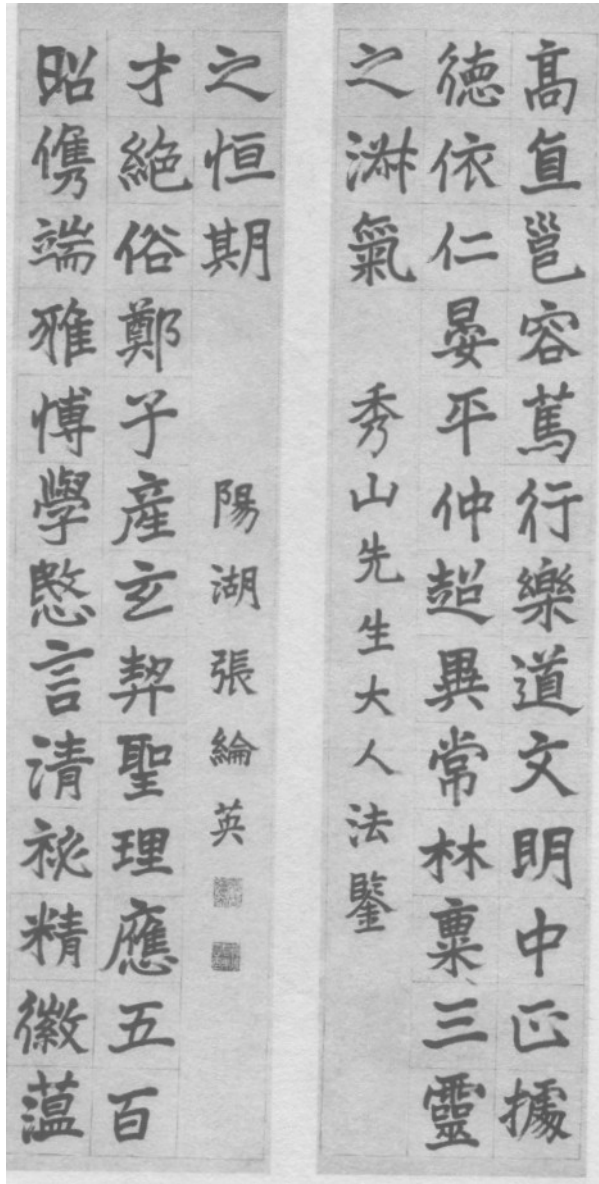 高直邕容篤行樂道文明中正據
德依仁晏平仲超異常林稟三靈
之淑氣
秀山先生大人法鑒
昭儁端雅博學慜言清祕精徽薀
才絕俗鄭子產玄契聖理應五百
之恒期
陽湖張綸英